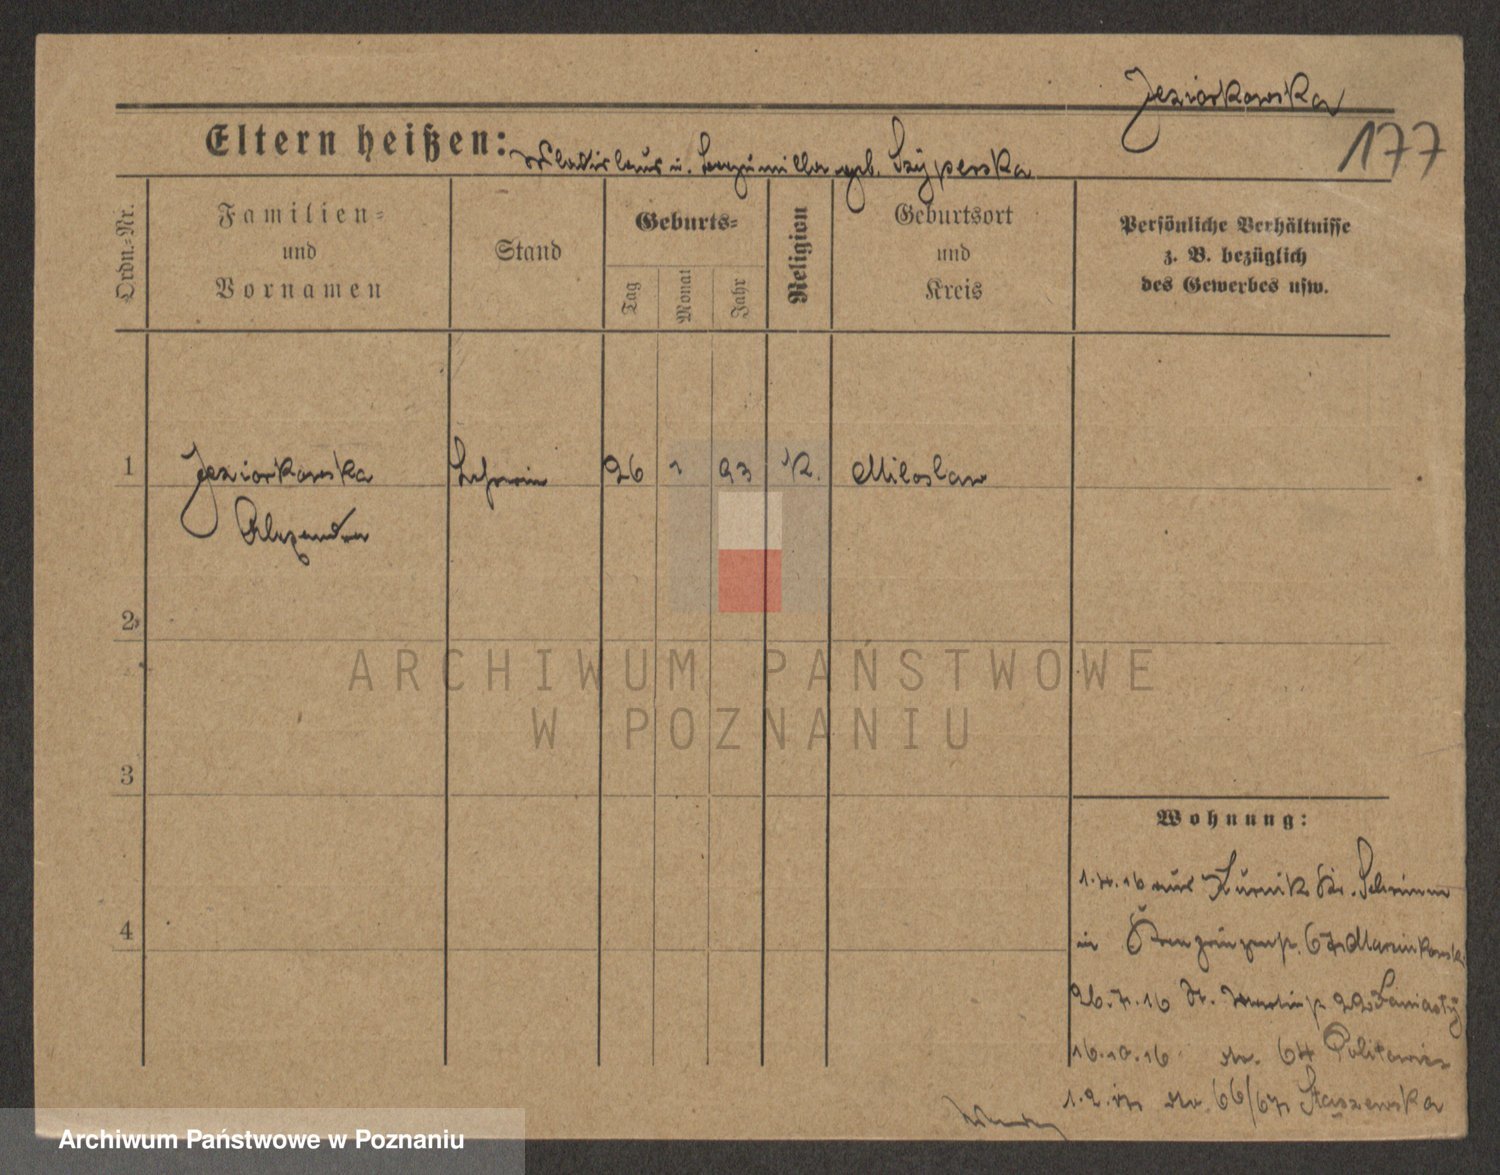 Jeziorkowska
177
Eltern heißen: Wladislaus u. Ludmilla geb. Szyperska
Ordn.-Nr.
Familien-
und
Vornamen
Stand
Geburts-
Tag
Monat
Jahr
Religion
Geburtsort
und
Kreis
Persönliche Verhältnisse
z. B. bezüglich
des Gewerbes usw.
1
Jeziorkowska
Alexandra
Lehrerin
26
1
93
K.
Miloslaw
2
3
4
ARCHIWUM PAŃSTWOWE
W POZNANIU
Wohnung:
1.4.16 aus Kurnik Kr. Schrimm
in 67 Marcinkowsk
26.7.16 St. Martinstr 22
16.10.16 do. 64 Politowicz
1.2.17 do. 66/67 Staszewska
Archiwum Państwowe w Poznaniu